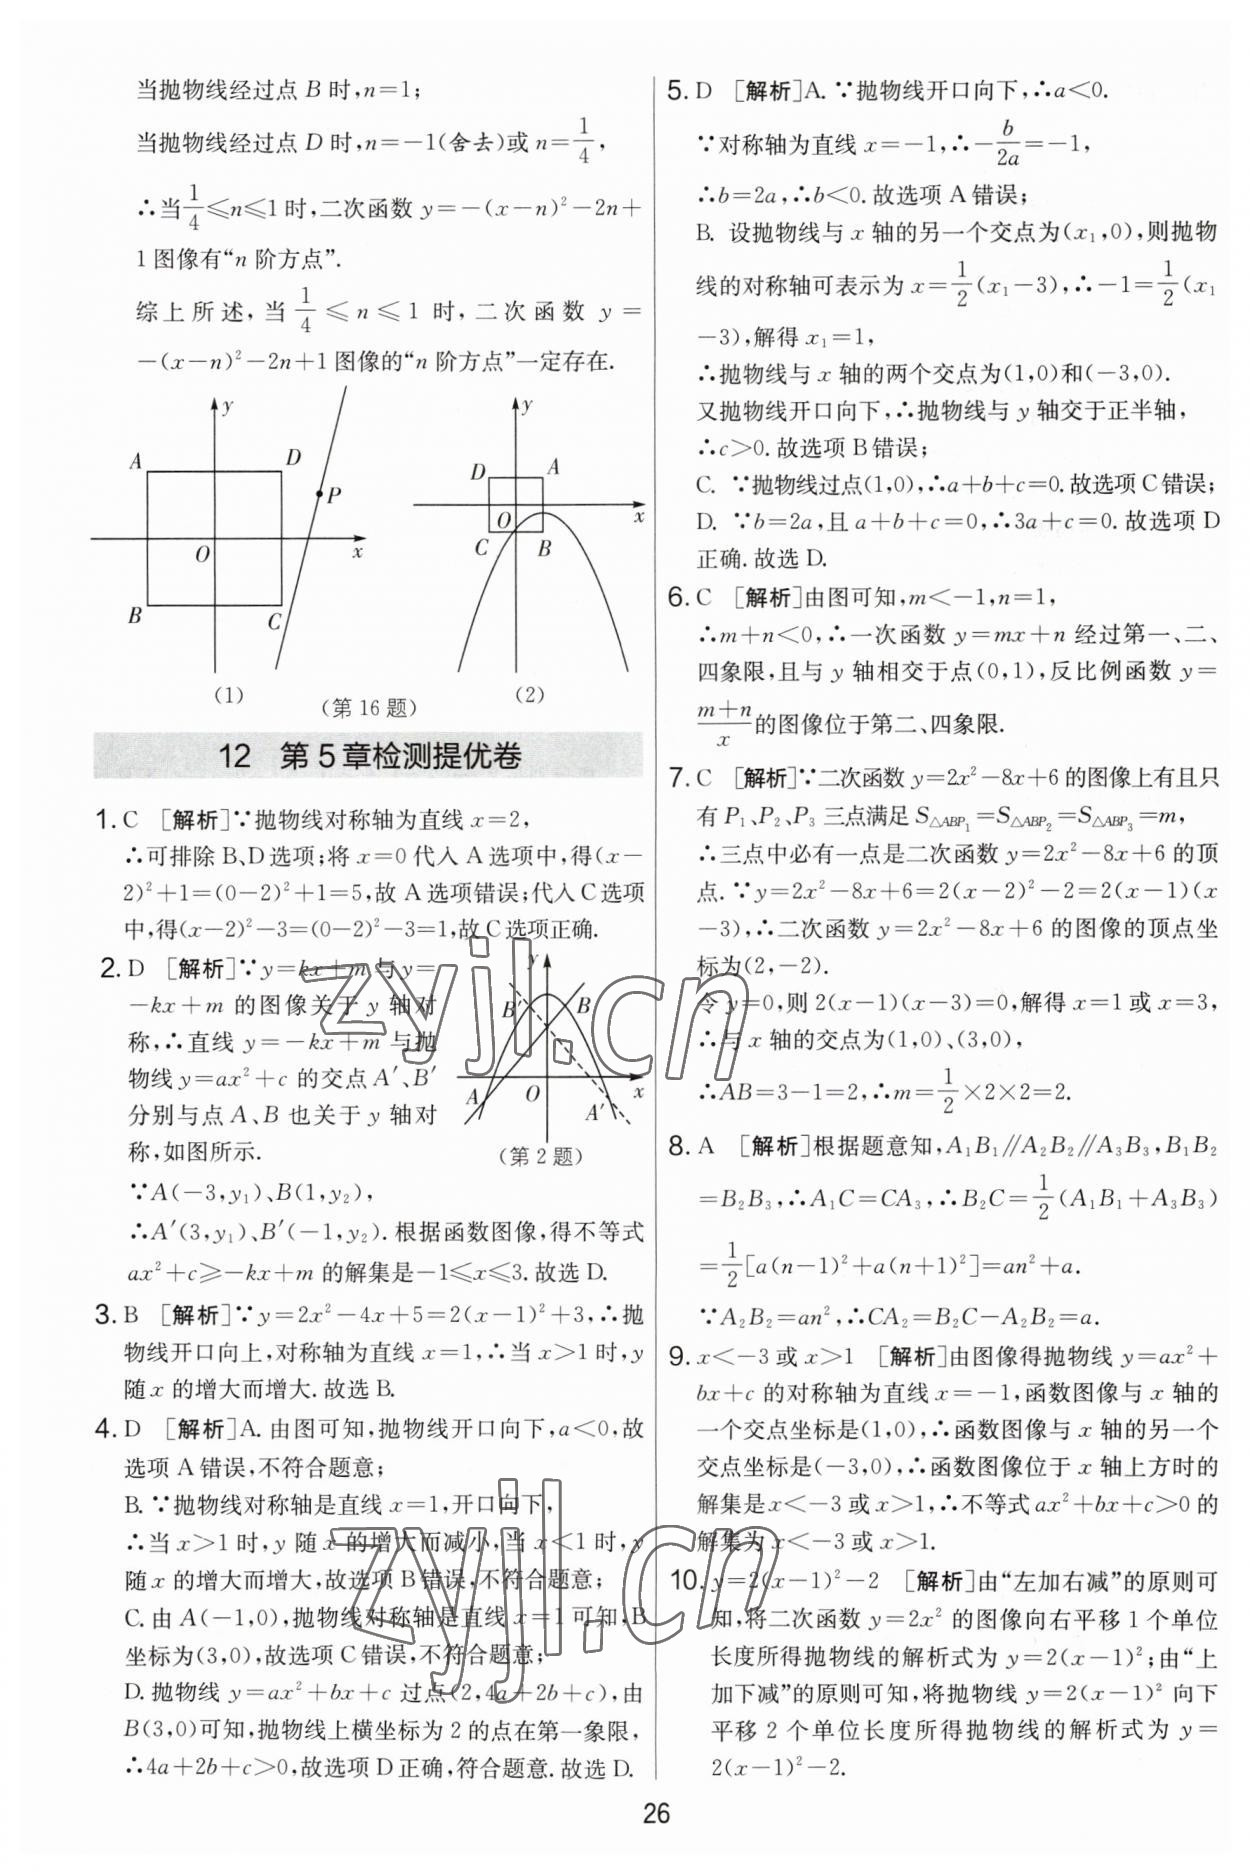 当抛物线经过点 B 时,n=1;
当抛物线经过点 D 时,n=-1(舍去)或 n=1/4,
∴当1/4≤n≤1 时,二次函数 y=-(x-n)²-2n+
1 图像有“n 阶方点”.
综上所述,当 1/4 ≤ n ≤ 1 时,二次函数 y =
-(x-n)²-2n+1 图像的“n 阶方点”一定存在.
y
A
D
P
O
x
B
C
(1)
y
D
A
O
x
C
B
(2)
(第 16 题)
12 第 5 章检测提优卷
1. C [解析]∵抛物线对称轴为直线 x=2,
∴可排除 B、D 选项;将 x=0 代入 A 选项中,得(x-
2)²+1=(0-2)²+1=5,故 A 选项错误;代入 C 选项
中,得(x-2)²-3=(0-2)²-3=1,故 C 选项正确.
2. D [解析]∵y=kx+m 与 y=
-kx+m 的图像关于 y 轴对
称,∴直线 y=-kx+m 与抛
物线 y=ax²+c 的交点 A′、B′
分别与点 A、B 也关于 y 轴对
称,如图所示.
y
B′
B
A
O
A′
x
(第 2 题)
∵A(-3,y₁)、B(1,y₂),
∴A′(3,y₁)、B′(-1,y₂).根据函数图像,得不等式
ax²+c≥-kx+m 的解集是-1≤x≤3.故选 D.
3. B [解析]∵y=2x²-4x+5=2(x-1)²+3,∴抛
物线开口向上,对称轴为直线 x=1,∴当 x>1 时,y
随 x 的增大而增大.故选 B.
4. D [解析]A. 由图可知,抛物线开口向下,a<0,故
选项 A 错误,不符合题意;
B. ∵抛物线对称轴是直线 x=1,开口向下,
∴当 x>1 时,y 随 x 的增大而减小,当 x<1 时,y
随 x 的增大而增大,故选项 B 错误,不符合题意;
C. 由 A(-1,0),抛物线对称轴是直线 x=1 可知,B
坐标为(3,0),故选项 C 错误,不符合题意;
D. 抛物线 y=ax²+bx+c 过点(2,4a+2b+c),由
B(3,0)可知,抛物线上横坐标为 2 的点在第一象限,
∴4a+2b+c>0,故选项 D 正确,符合题意.故选 D.
5. D [解析]A. ∵抛物线开口向下,∴a<0.
∵对称轴为直线 x=-1,∴-b/2a=-1,
∴b=2a,∴b<0.故选项 A 错误;
B. 设抛物线与 x 轴的另一个交点为(x₁,0),则抛物
线的对称轴可表示为 x=1/2(x₁-3),∴-1=1/2(x₁
-3),解得 x₁=1,
∴抛物线与 x 轴的两个交点为(1,0)和(-3,0).
又抛物线开口向下,∴抛物线与 y 轴交于正半轴,
∴c>0.故选项 B 错误;
C. ∵抛物线过点(1,0),∴a+b+c=0.故选项 C 错误;
D. ∵b=2a,且 a+b+c=0,∴3a+c=0.故选项 D
正确.故选 D.
6. C [解析]由图可知,m<-1,n=1,
∴m+n<0,∴一次函数 y=mx+n 经过第一、二、
四象限,且与 y 轴相交于点(0,1),反比例函数 y=
(m+n)/x 的图像位于第二、四象限.
7. C [解析]∵二次函数 y=2x²-8x+6 的图像上有且只
有 P₁、P₂、P₃ 三点满足 S△ABP₁=S△ABP₂=S△ABP₃=m,
∴三点中必有一点是二次函数 y=2x²-8x+6 的顶
点.∵y=2x²-8x+6=2(x-2)²-2=2(x-1)(x
-3),∴二次函数 y=2x²-8x+6 的图像的顶点坐
标为(2,-2).
令 y=0,则 2(x-1)(x-3)=0,解得 x=1 或 x=3,
∴与 x 轴的交点为(1,0)、(3,0),
∴AB=3-1=2,∴m=1/2×2×2=2.
8. A [解析]根据题意知,A₁B₁∥A₂B₂∥A₃B₃,B₁B₂
=B₂B₃,∴A₁C=CA₃,∴B₂C=1/2(A₁B₁+A₃B₃)
=1/2[a(n-1)²+a(n+1)²]=an²+a.
∵A₂B₂=an²,∴CA₂=B₂C-A₂B₂=a.
9. x<-3 或 x>1 [解析]由图像得抛物线 y=ax²+
bx+c 的对称轴为直线 x=-1,函数图像与 x 轴的
一个交点坐标是(1,0),∴函数图像与 x 轴的另一个
交点坐标是(-3,0),∴函数图像位于 x 轴上方时的
解集是 x<-3 或 x>1,∴不等式 ax²+bx+c>0 的
解集为 x<-3 或 x>1.
10. y=2(x-1)²-2 [解析]由“左加右减”的原则可
知,将二次函数 y=2x² 的图像向右平移 1 个单位
长度所得抛物线的解析式为 y=2(x-1)²;由“上
加下减”的原则可知,将抛物线 y=2(x-1)² 向下
平移 2 个单位长度所得抛物线的解析式为 y=
2(x-1)²-2.
26
zyjl.cn
zyjl.cn